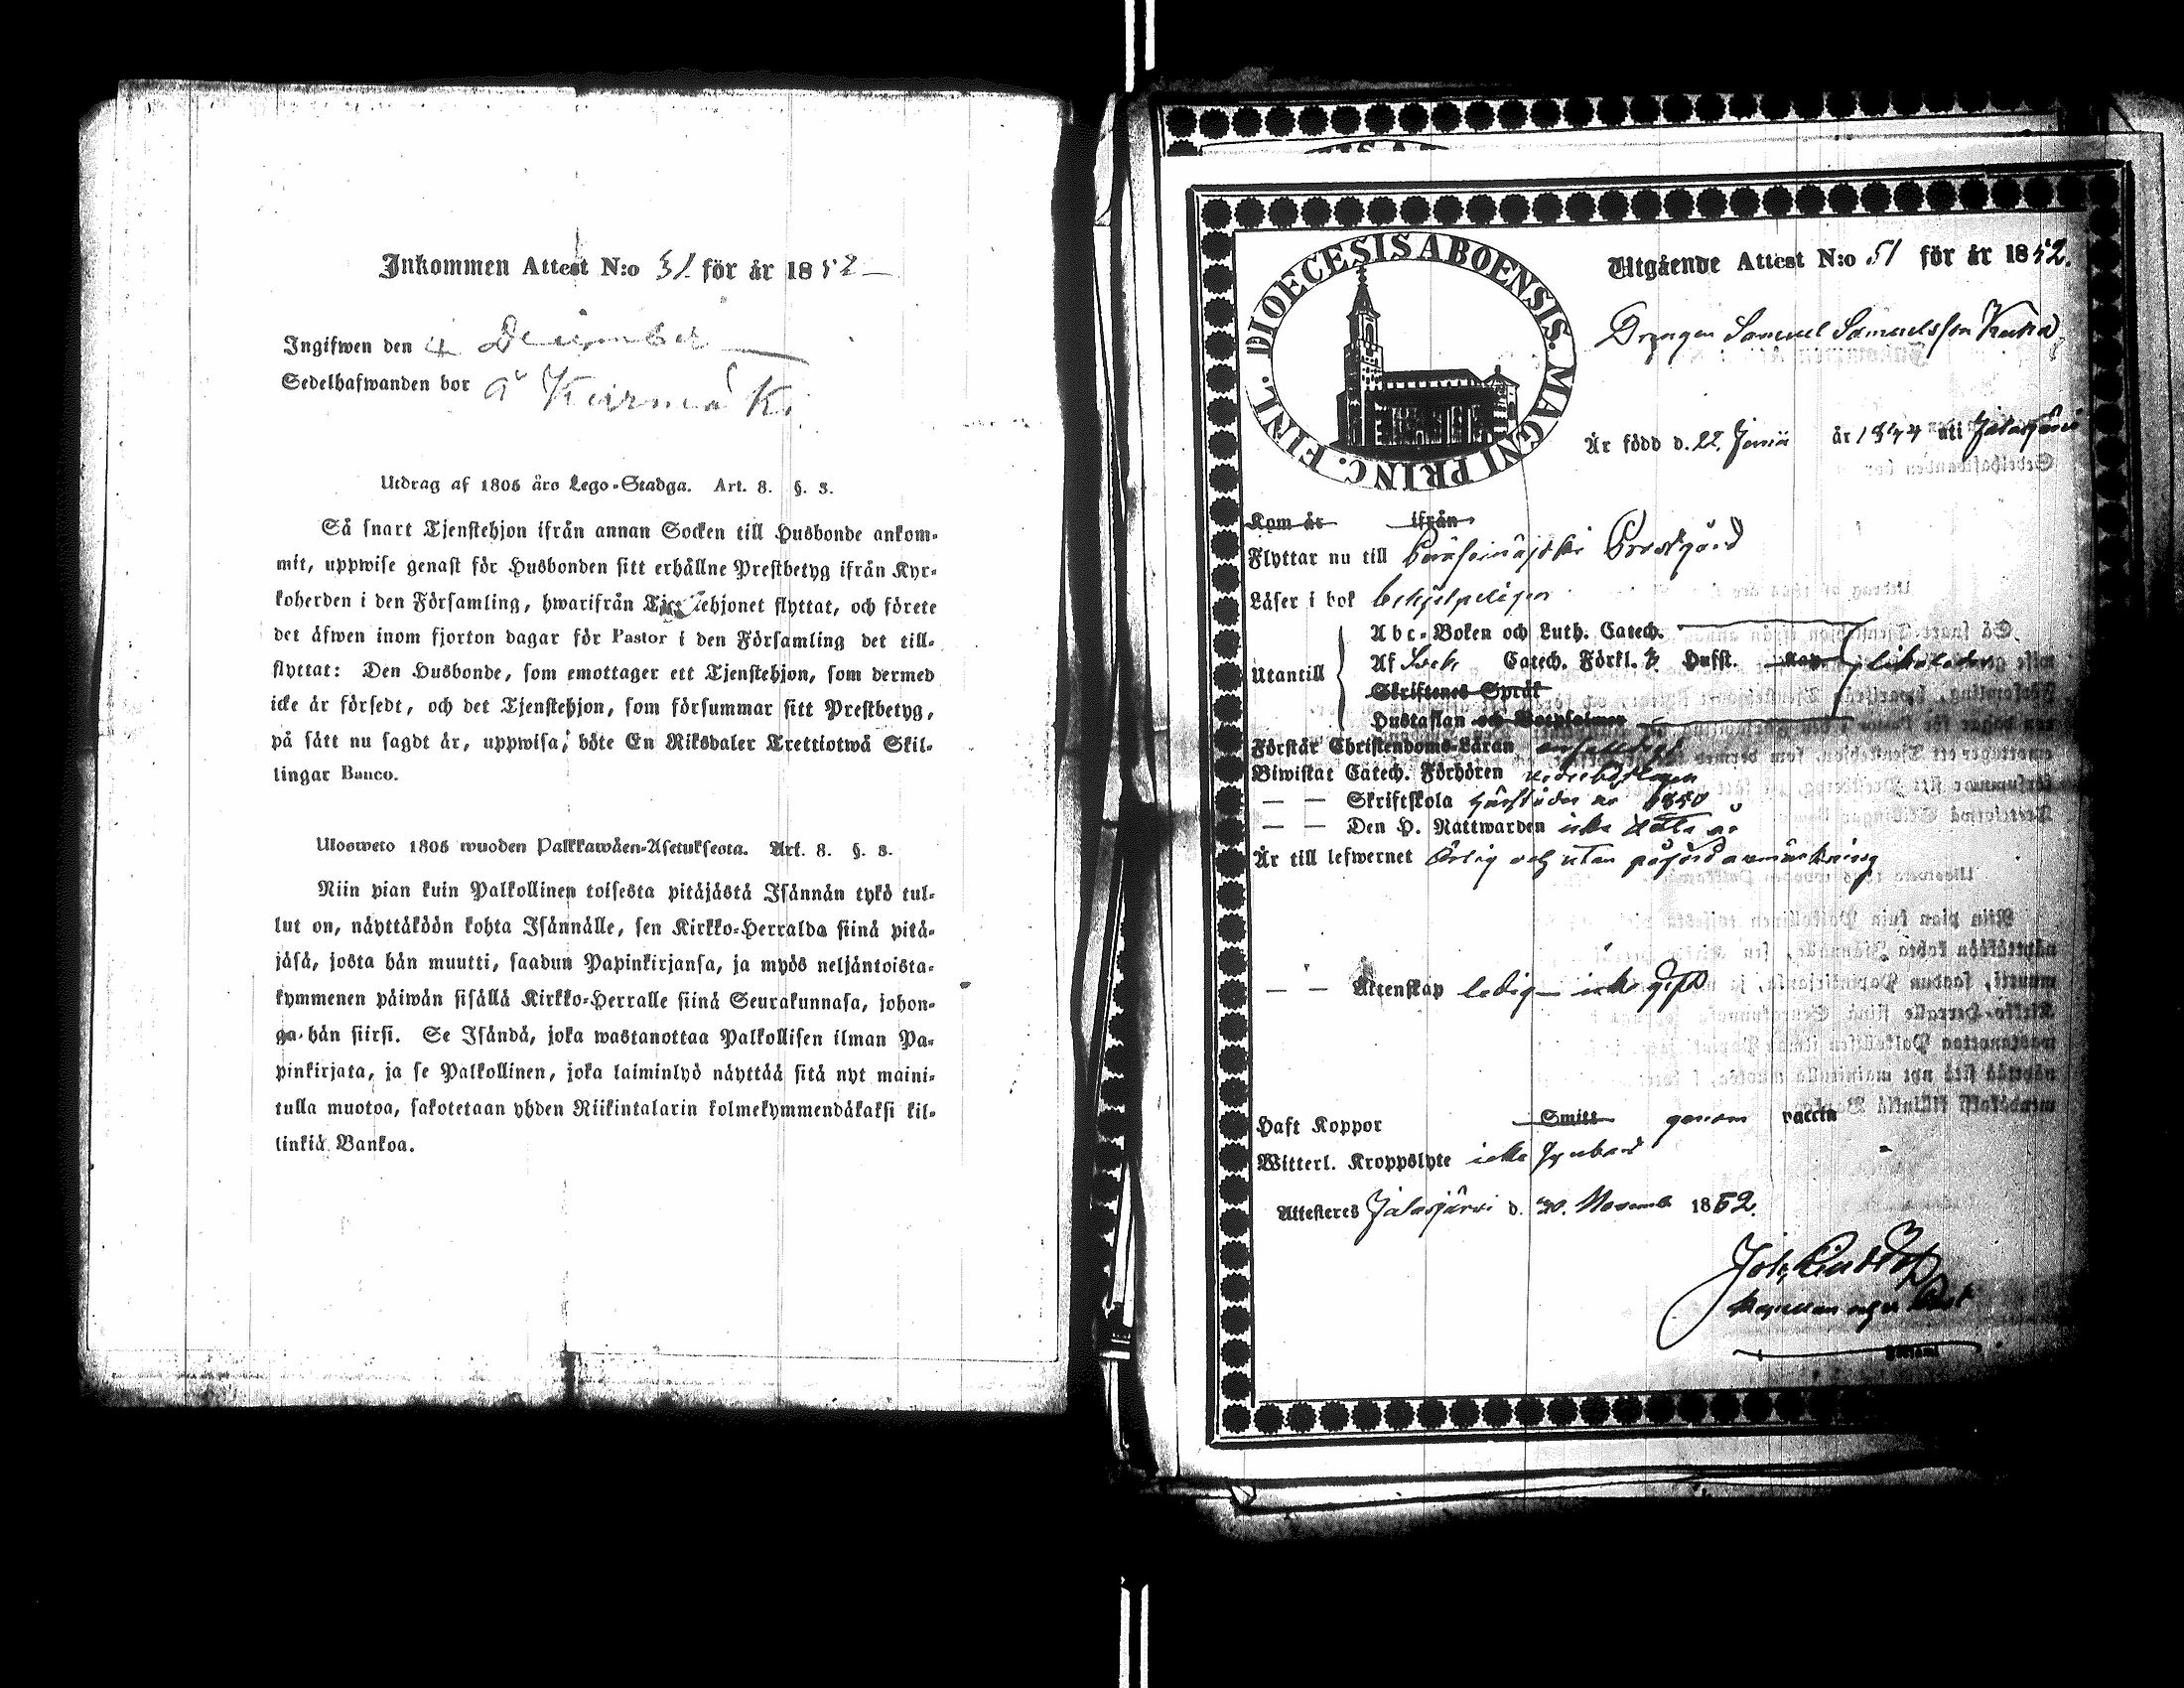 Inkommen Attest N:o 31 för år 1852
Ingifwen den 4 December
Sedelhafwanden bor å Kuirmäki
Utdrag af 1805 års Lego-Stadga. Art. 8. §. 3.
Så snart Tjenstehjon ifrån annan Socken till Husbonde ankom-
mit, uppwise genast för Husbonden sitt erhållne Prestbetyg ifrån Kyr-
koherden i den Församling, hwarifrån Tjenstehjonet flyttat, och förete
det äfwen inom fjorton dagar för Pastor i den Församling det till-
flyttat: Den Husbonde, som emottager ett Tjenstehjon, som dermed
icke är försedt, och det Tjenstehjon, som försummar sitt Prestbetyg,
på sätt nu sagdt är, uppwisa, böte En Riksdaler Trettiotwå Skil-
lingar Banco.
Ulosweto 1805 wuoden Palkkawäen-Asetuksesta. Art. 8. §. 3.
Niin pian kuin Palkollinen toisesta pitäjästä Isännän tykö tul-
lut on, näyttäköön kohta Isännälle, sen Kirkko-Herralda siinä pitä-
jäsä, josta hän muutti, saadun Papinkirjansa, ja myös neljäntoista-
kymmenen päiwän sisällä Kirkko-Herralle siinä Seurakunnasa, johon-
ga hän siirsi. Se Isändä, joka wastanottaa Palkollisen ilman Pa-
pinkirjata, ja se Palkollinen, joka laiminlyö näyttää sitä nyt maini-
tulla muotoa, sakotetaan yhden Riikintalarin kolmekymmendäkaksi kil-
linkiä Bankoa.
FINL. DIOECESIS ABOENSIS. MAGNI PRINC.
Utgående Attest N:o 51 för år 1852.
Drengen Samuel Samuelsson
Är född d. 22. Junii år uti Jalasjärvi
Kom år ifrån
Flyttar nu till Peräseinäjoki Prestgård
Läser i bok behjelpeligen
Utantill
Abc-Boken och Luth. Catech.
Af Catech. Förkl. Hufst. Kap. likaledes
Skriftenes Språk
Hustaflan och Botpsalmer
Förstår Christendoms-Läran enfaldigt
Biwistat Catech. Förhören vederbörligen
— — Skriftskola härstädes år 1850
— — Den H. Nattwarden icke detta år
Är till lefwernet Ärlig och utan påförd anmärkning
— — Äktenskap ledig icke gift
Haft Koppor Smitt genom vaccin
Witterl. Kroppslyte icke
Attesteres Jalasjärvi d. 30. Novemb 1852.
Joh.
Kapellan och v. Past